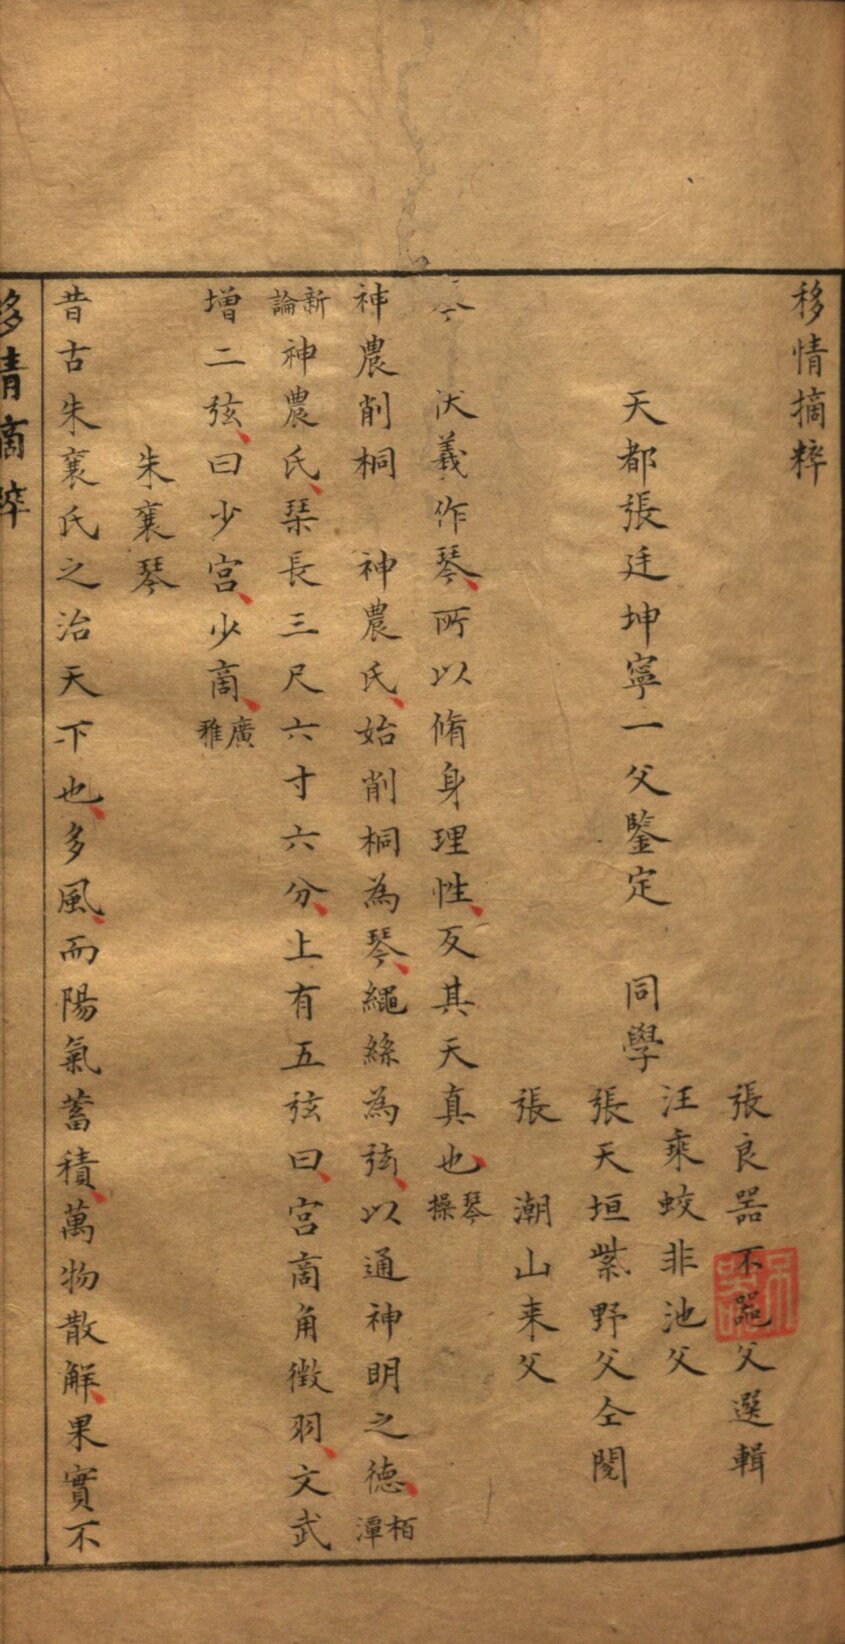 移情摘粹
張良噐不噐父選輯
天都張廷坤寧一父鑒定　同學
汪乘蛟非池父
張天垣紫野父仝閱
張　潮山来父
琴　伏義作琴所以脩身理性反其天真也琴操
神農削桐　神農氏始削桐為琴繩絲為弦以通神明之德栢潭
新論神農氏琹長三尺六寸六分上有五弦曰宮商角徵羽文武
增二弦曰少宮少商廣雅
朱襄琴
昔古朱襄氏之治天下也多風而陽氣蓄積萬物散解果實不
移情摘粹